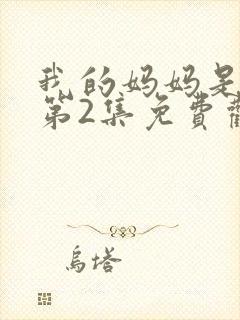 我的妈妈是
第2集免費
烏塔